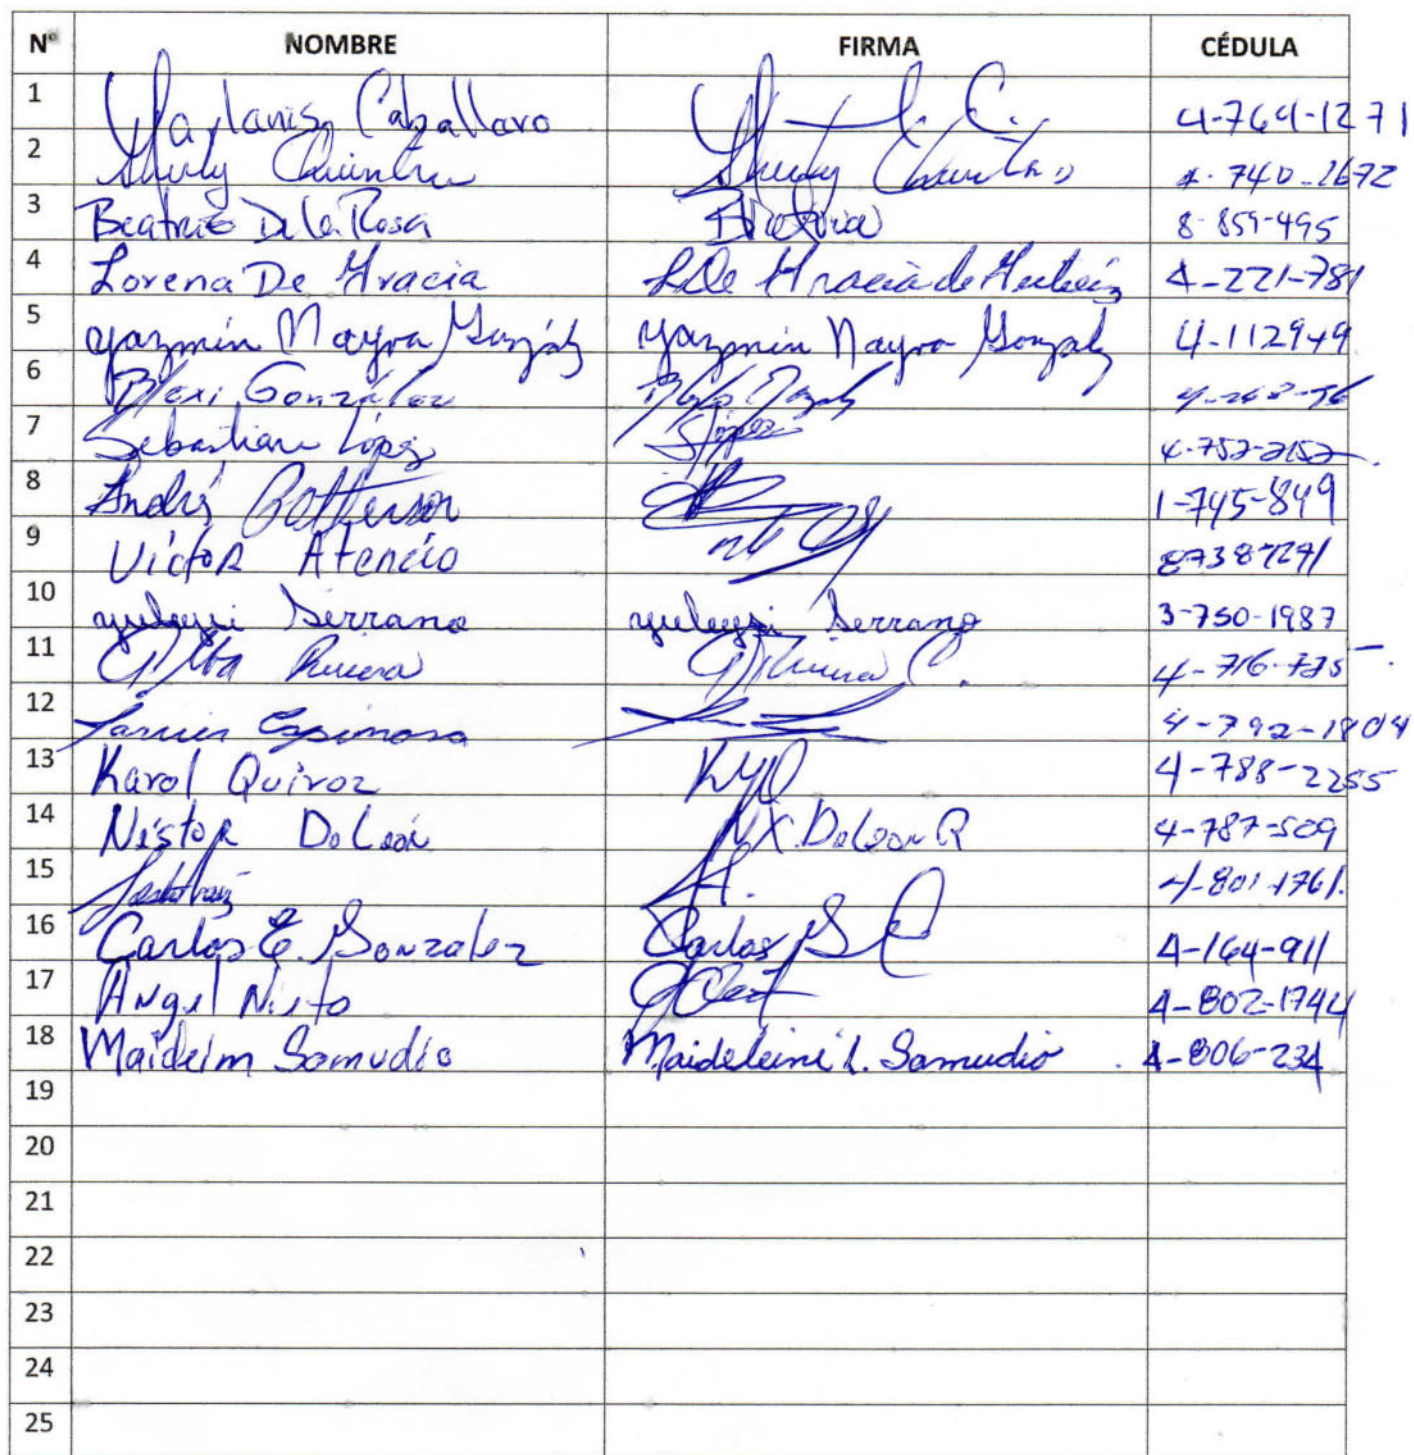 Nº NOMBRE FIRMA CÉDULA
1 Yaylanis Caballero C. 4-764-1271
2 740-1672
3 Beatriz De la Rosa 8-859-495
4 Lorena De Gracia L De Gracia de 4-221-781
5 yazmin Mayra González yazmin Mayra González 4-112949
6 González
7 Sebastian López López 4-752-2152
8 André Patterson 1-745-849
9 Victor Atencio
10 yuleysi Serrano yuleysi Serrano 3-750-1987
11 Rivera C. 4-716-775
12 Espinosa 4-792-1804
13 Karol Quiroz KYQ 4-788-2255
14 Néstor De León N X. DeLeon R 4-787-509
15 4-801-1761
16 Carlos E. Gonzalez Carlos G 4-164-911
17 Angel Nieto 4-802-1744
18 Maideim Samudio Maideleine L. Samudio 4-806-234
19
20
21
22
23
24
25